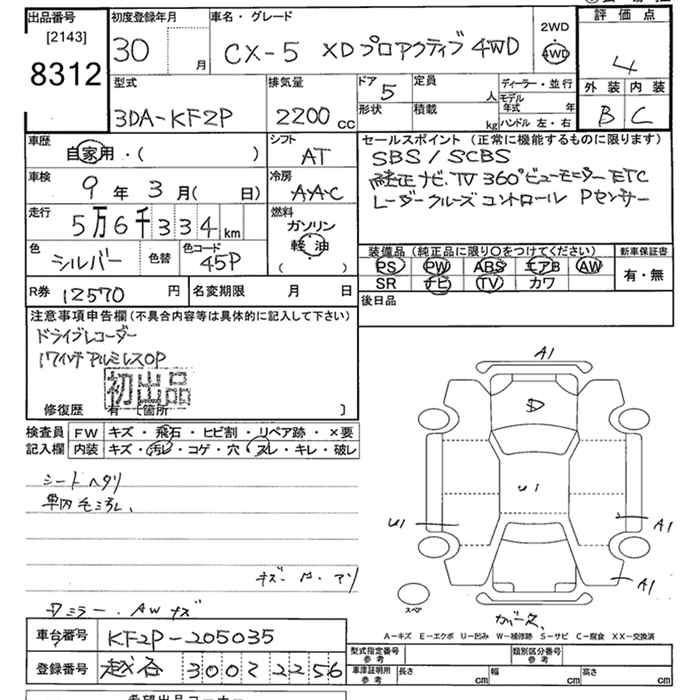 出品番号
[2143]
8312
初度登録年月
30
月
車名・グレード
CX-5 XDプロアクティブ 4WD
2WD
4WD
評価点
4
外装 内装
B C
型式
3DA-KF2P
排気量
2200 cc
ドア
5
形状
定員
人
積載
kg
ディーラー・並行
モデル年式
年
ハンドル 左・右
車歴
自家用・( )
シフト
AT
車検
9 年 3 月( 日)
冷房
AAC
走行
5万6千334 km
燃料
ガソリン
軽油
( )
色
シルバー
色替
色コード
45P
R券 12570 円
名変期限 月 日
セールスポイント (正常に機能するものに限ります)
SBS / SCBS
純正ナビ.TV 360°ビューモニター ETC
レーダークルーズコントロール Pセンサー
装備品(純正品に限り○をつけてください)
PS PW ABS エアB AW
SR ナビ TV カワ
新車保証書
有・無
後日品
注意事項申告欄(不具合内容等は具体的に記入して下さい)
ドライブレコーダー
17インチアルミレスOP
初出品
修復歴 有 〔箇所 〕
検査員記入欄
FW キズ・飛石・ヒビ割・リペア跡・×要
内装 キズ・汚レ・コゲ・穴・スレ・キレ・破レ
シートヘタリ
A1
D
U1
U1
A1
A1
スペア
A-キズ E-エクボ U-凹み W-補修跡 S-サビ C-腐食 XX-交換済
ミラー.AWキズ
車台番号 KF2P-205035
登録番号 越谷 300 2256
型式指定番号
参考
類別区分番号
参考
車庫証明用
参考
長さ cm
幅 cm
高さ cm
希望出品コーナー